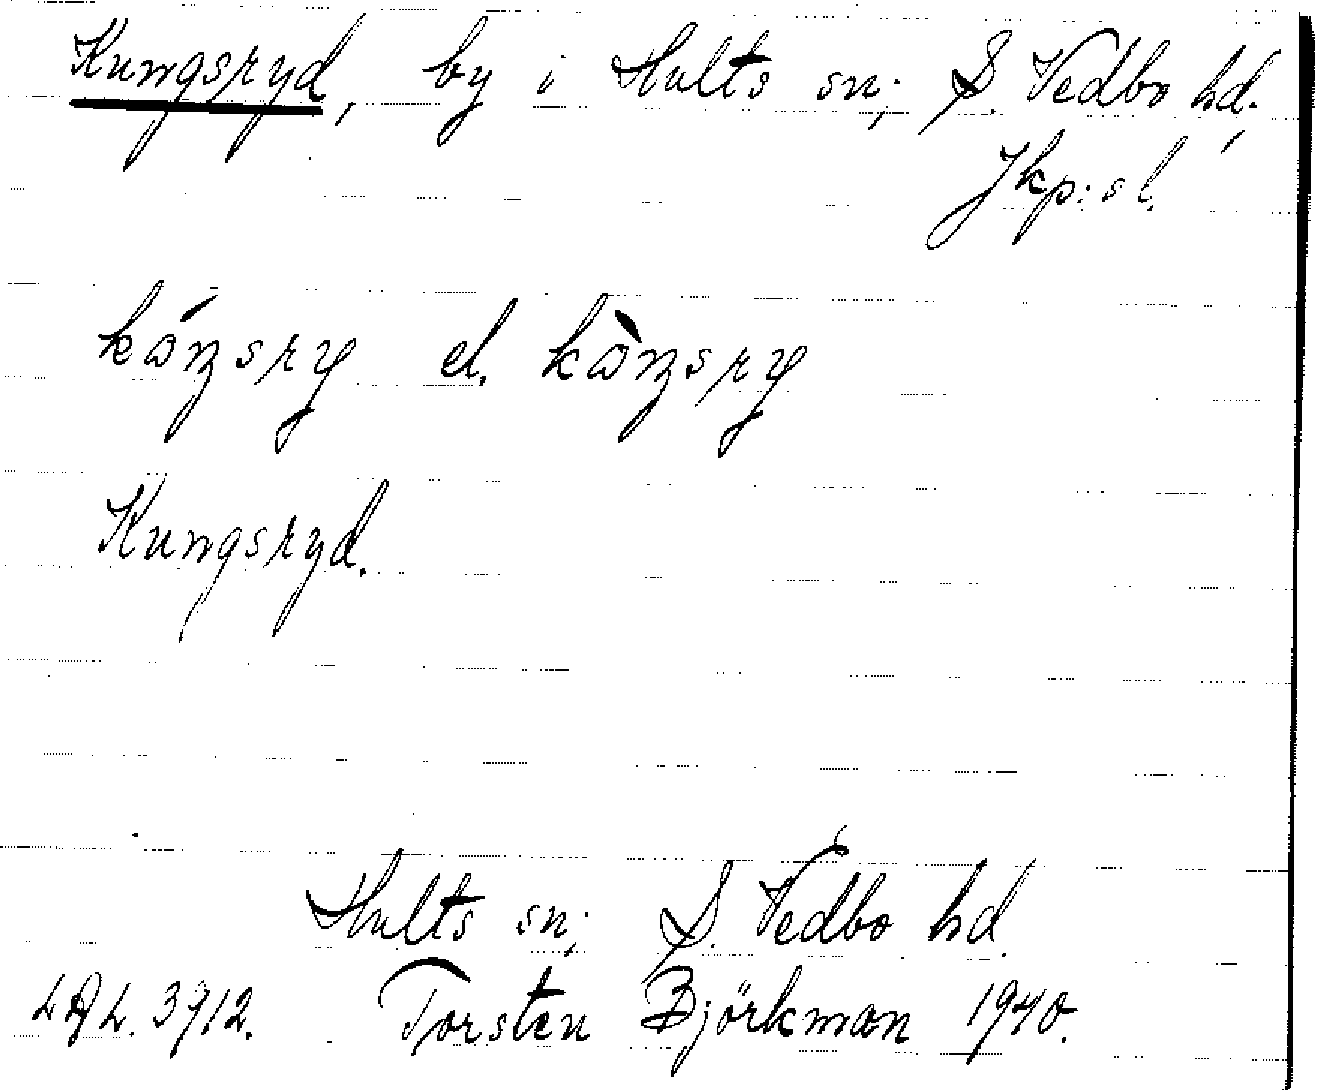 Kungsryd, by i Hults sn; S. Vedbo hd.
Jkp:s l.
el.
Kungsryd.
Hults sn; S. Vedbo hd.
LAL. 3912. Torsten Björkman 1940.